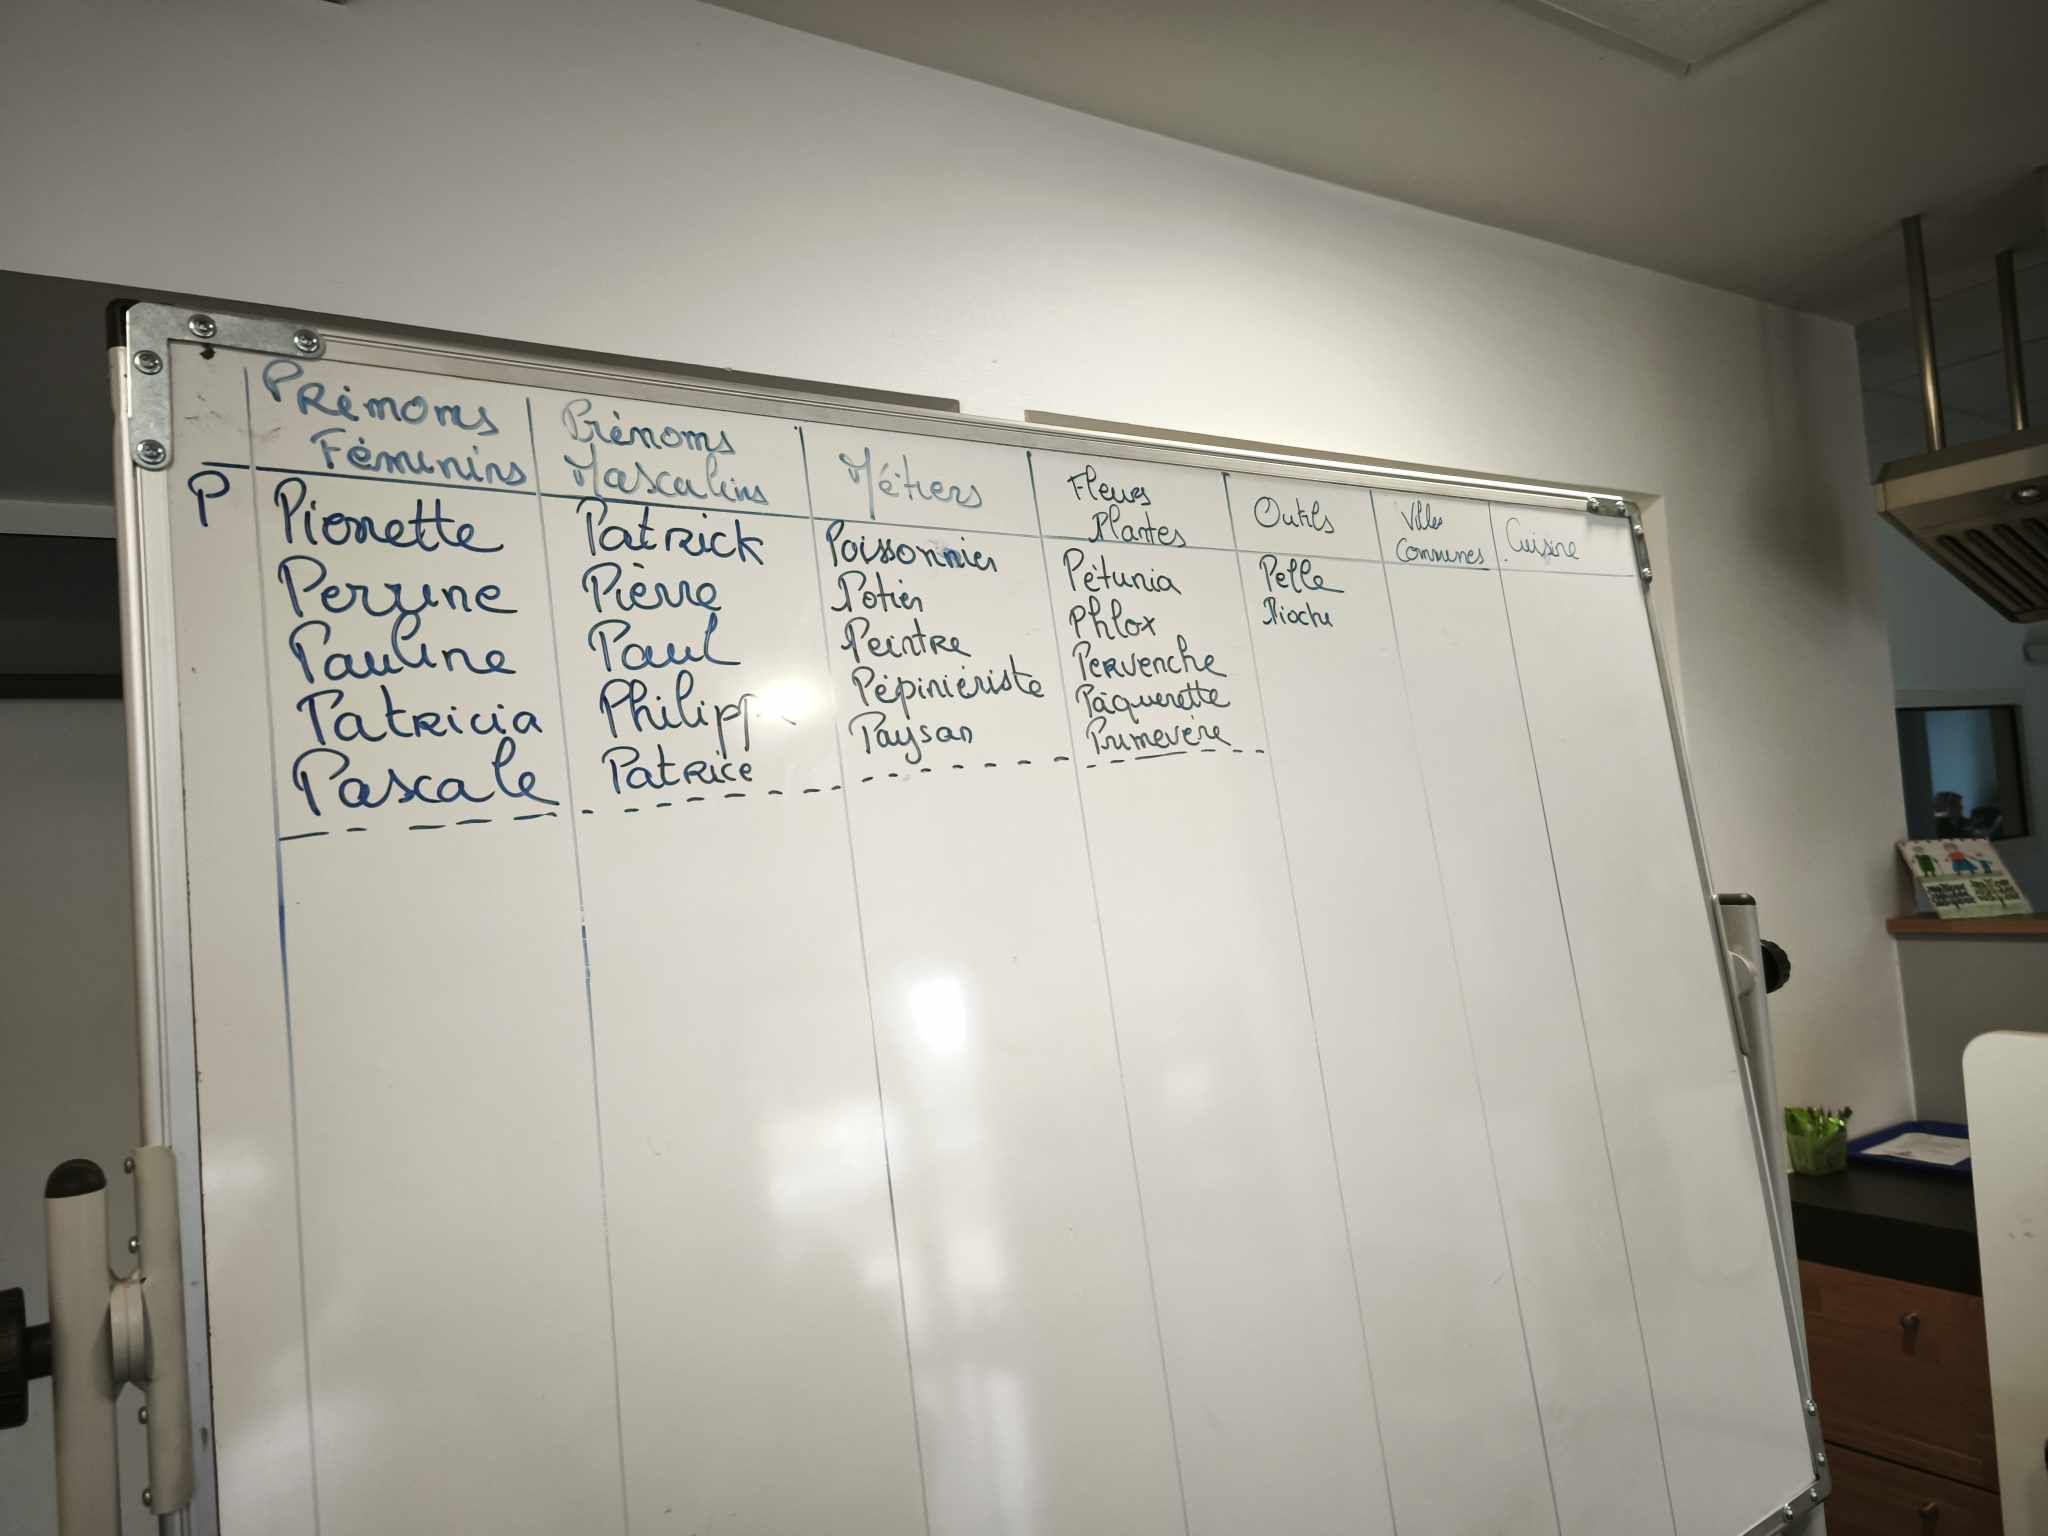 Prénoms Féminins
Prénoms Masculins
Métiers
Fleurs Plantes
Outils
Villes Communes
Cuisine
P
Pierrette
Patrick
Poissonnier
Pétunia
Pelle
Perrine
Pièrre
Potier
Phlox
Pioche
Pauline
Paul
Peintre
Pervenche
Patricia
Philipp
Pépiniériste
Pâquerette
Pascale
Patrice
Paysan
Primevère